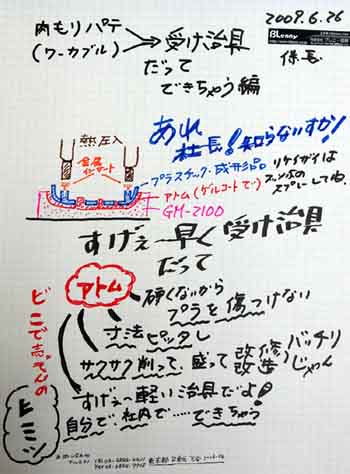 2009.6.26
肉もりパテ
(ワーカブル)
受け治具
だって
できちゃう編
Blenny
係長
あれ
社長!知らないすか!
熱圧入
金属
インサート
プラスチック・成形品
リケイザイは
スプレーしてね.
アトム(ゲルコートで)
GM-2100
すげぇ早く受け治具
だって
アトム
硬くないから
プラを傷つけない
寸法ピッタし
サクサク削って、盛って改修
改造
バッチリ
じゃん
すげぇ軽い治具だよ!
自分で社内で……できちゃう
どこで売ってんの
ヒミツ